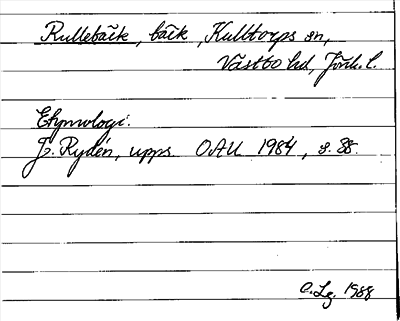 Rullebäck, bäck, Kulltorps sn,
Västbo hd, Jönk. l.
Etymologi:
J. Rydén, upps. OAU 1984, s. 88.
O.Lg. 1988